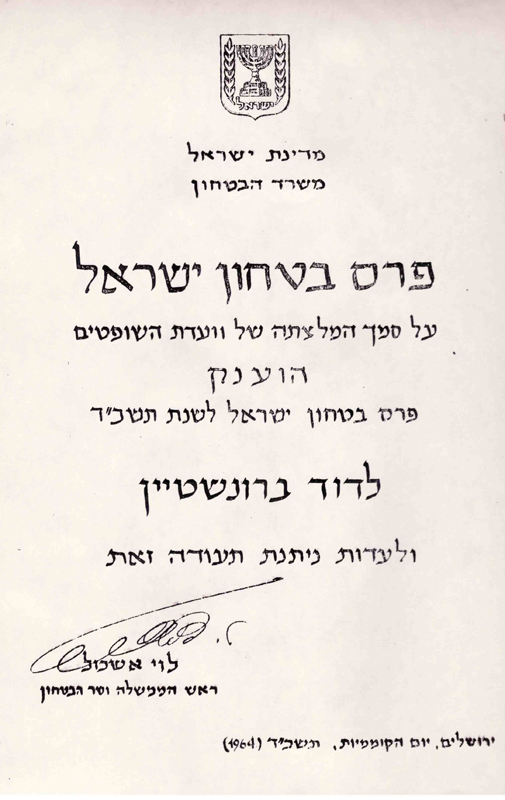 ישראל
מדינת ישראל
משרד הבטחון
פרס בטחון ישראל
על סמך המלצתה של וועדת השופטים
הוענק
פרס בטחון ישראל לשנת תשכ״ד
לדוד ברונשטיין
ולעדות ניתנת תעודה זאת
לוי אשכול
ראש הממשלה ושר הבטחון
ירושלים, יום הקוממיות, תשכ״ד (1964)